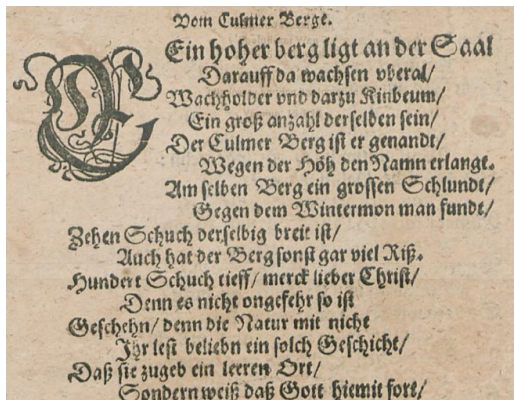 Vom Culmer Berge.
Ein hoher berg ligt an der Saal
Darauff da wachsen vberal/
Wachholder vnd darzu Kinbeum/
Ein groß anzahl derselben sein/
Der Culmer Berg ist er genandt/
Wegen der Höh den Namn erlangt.
Am selben Berg ein grossen Schlundt/
Gegen dem Wintermon man fundt/
Zehen Schuch derselbig breit ist/
Auch hat der Berg sonst gar viel Riß.
Hundert Schuch tieff/ merck lieber Christ/
Denn es nicht ongefehr so ist
Geschehn/ denn die Natur mit nicht
Jhr lest beliebn ein solch Geschicht/
Daß sie zugeb ein leeren Ort/
Sondern weiß daß Gott hiemit fort/